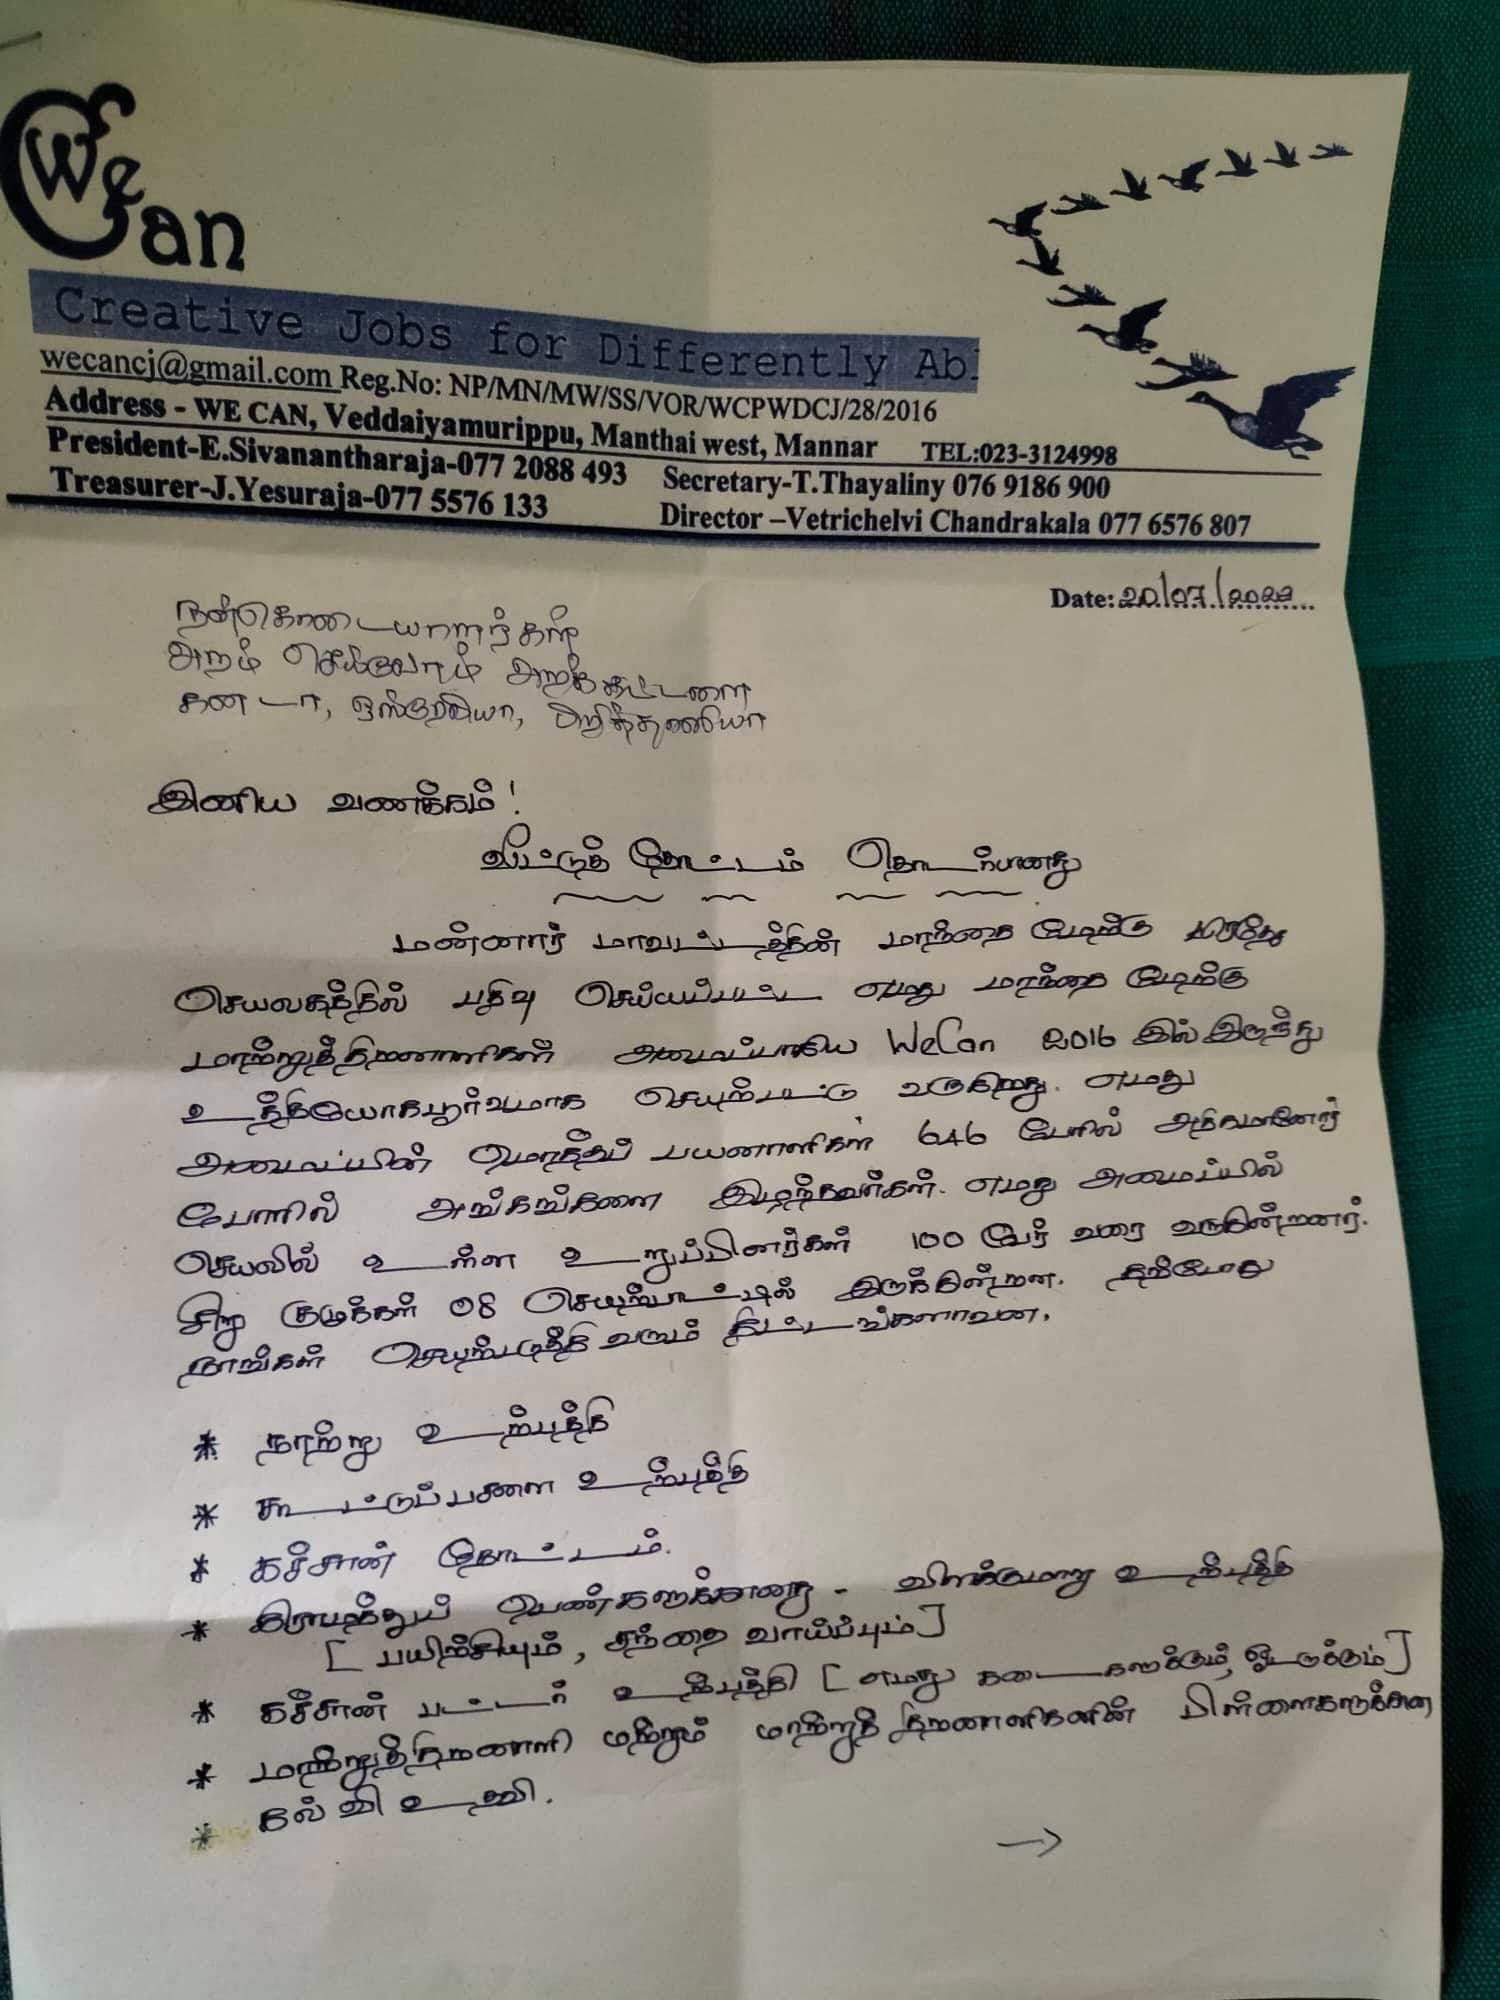 We Can
Creative Jobs for Differently Abl
wecancj@gmail.com Reg.No: NP/MN/MW/SS/VOR/WCPWDCJ/28/2016
Address - WE CAN, Veddaiyamurippu, Manthai west, Mannar TEL:023-3124998
President-E.Sivanantharaja-077 2088 493 Secretary-T.Thayaliny 076 9186 900
Treasurer-J.Yesuraja-077 5576 133 Director –Vetrichelvi Chandrakala 077 6576 807
Date: 20/07/2022
நன்கொடையாளர்கள்
அறம் செய்வோம் அறக்கட்டளை
கனடா, ஒஸ்ரேலியா, பிரித்தானியா
இனிய வணக்கம்!
வீட்டுத் தோட்டம் தொடர்பானது
மன்னார் மாவட்டத்தின் மாந்தை மேற்கு பிரதேச
செயலகத்தில் பதிவு செய்யப்பட்ட எமது மாந்தை மேற்கு
மாற்றுத்திறனாளிகள் அமைப்பாகிய WeCan 2016 இல் இருந்து
உத்தியோகபூர்வமாக செயற்பட்டு வருகிறது. எமது
அமைப்பின் மொத்தப் பயனாளிகள் 646 பேரில் அதிகமானோர்
போரில் அங்கங்களை இழந்தவர்கள். எமது அமைப்பில்
செயலில் உள்ள உறுப்பினர்கள் 100 பேர் வரை வருகின்றனர்.
சிறு குழுக்கள் 08 செயற்பாட்டில் இருக்கின்றன. தற்போது
நாங்கள் செயற்படுத்தி வரும் திட்டங்களாவன.
* நாற்று உற்பத்தி
* கூட்டுப்பசளை உற்பத்தி
* கச்சான் தோட்டம்.
* கிராமத்துப் பெண்களுக்கான - விளக்குமாறு உற்பத்தி
[ பயிற்சியும், சந்தை வாய்ப்பும்]
* கச்சான் பட்டர் உற்பத்தி [ எமது கடைகளுக்கும், ஓடருக்கும்]
* மாற்றுத்திறனாளி மற்றும் மாற்றுத்திறனாளிகளின் பிள்ளைகளுக்கான
* கல்வி உதவி.
→